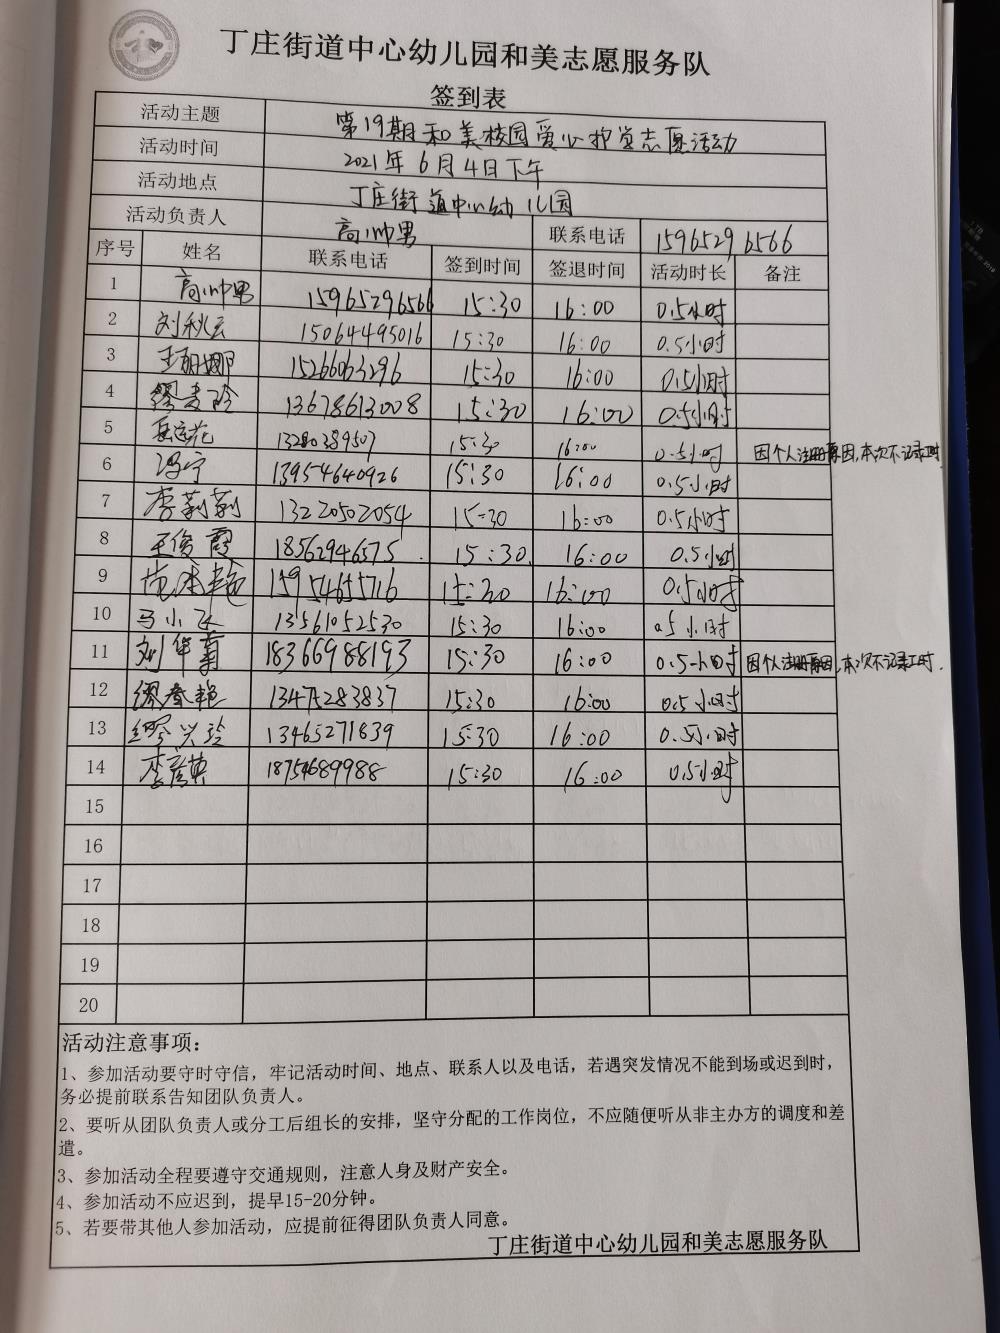 丁庄街道中心幼儿园和美志愿服务队
签到表
活动主题 第19期和美校园爱心护学志愿活动
活动时间 2021年6月4日下午
活动地点 丁庄街道中心幼儿园
活动负责人 高帅男 联系电话 15965296566
序号 姓名 联系电话 签到时间 签退时间 活动时长 备注
1 高帅男 15965296566 15:30 16:00 0.5小时
2 刘秋云 15064495016 15:30 16:00 0.5小时
3 王丽娜 15266063296 15:30 16:00 0.5小时
4 缪麦玲 13678613008 15:30 16:00 0.5小时
5 岳连花 13280389507 15:30 16:00 0.5小时 因个人注册原因,本次不记录工时
6 冯宁 13954640926 15:30 16:00 0.5小时
7 李莉莉 13220502054 15:30 16:00 0.5小时
8 王俊霞 18562946575 15:30 16:00 0.5小时
9 15954655716 15:30 16:00 0.5小时
10 马小飞 13561052530 15:30 16:00 0.5小时
11 刘华菊 18366988193 15:30 16:00 0.5小时 因个人注册原因,本次不记录工时.
12 缪春艳 13475283837 15:30 16:00 0.5小时
13 缪兴玲 13465271839 15:30 16:00 0.5小时
14 李彦英 18754689988 15:30 16:00 0.5小时
15
16
17
18
19
20
活动注意事项:
1、参加活动要守时守信,牢记活动时间、地点、联系人以及电话,若遇突发情况不能到场或迟到时,
务必提前联系告知团队负责人。
2、要听从团队负责人或分工后组长的安排,坚守分配的工作岗位,不应随便听从非主办方的调度和差
遣。
3、参加活动全程要遵守交通规则,注意人身及财产安全。
4、参加活动不应迟到,提早15-20分钟。
5、若要带其他人参加活动,应提前征得团队负责人同意。
丁庄街道中心幼儿园和美志愿服务队